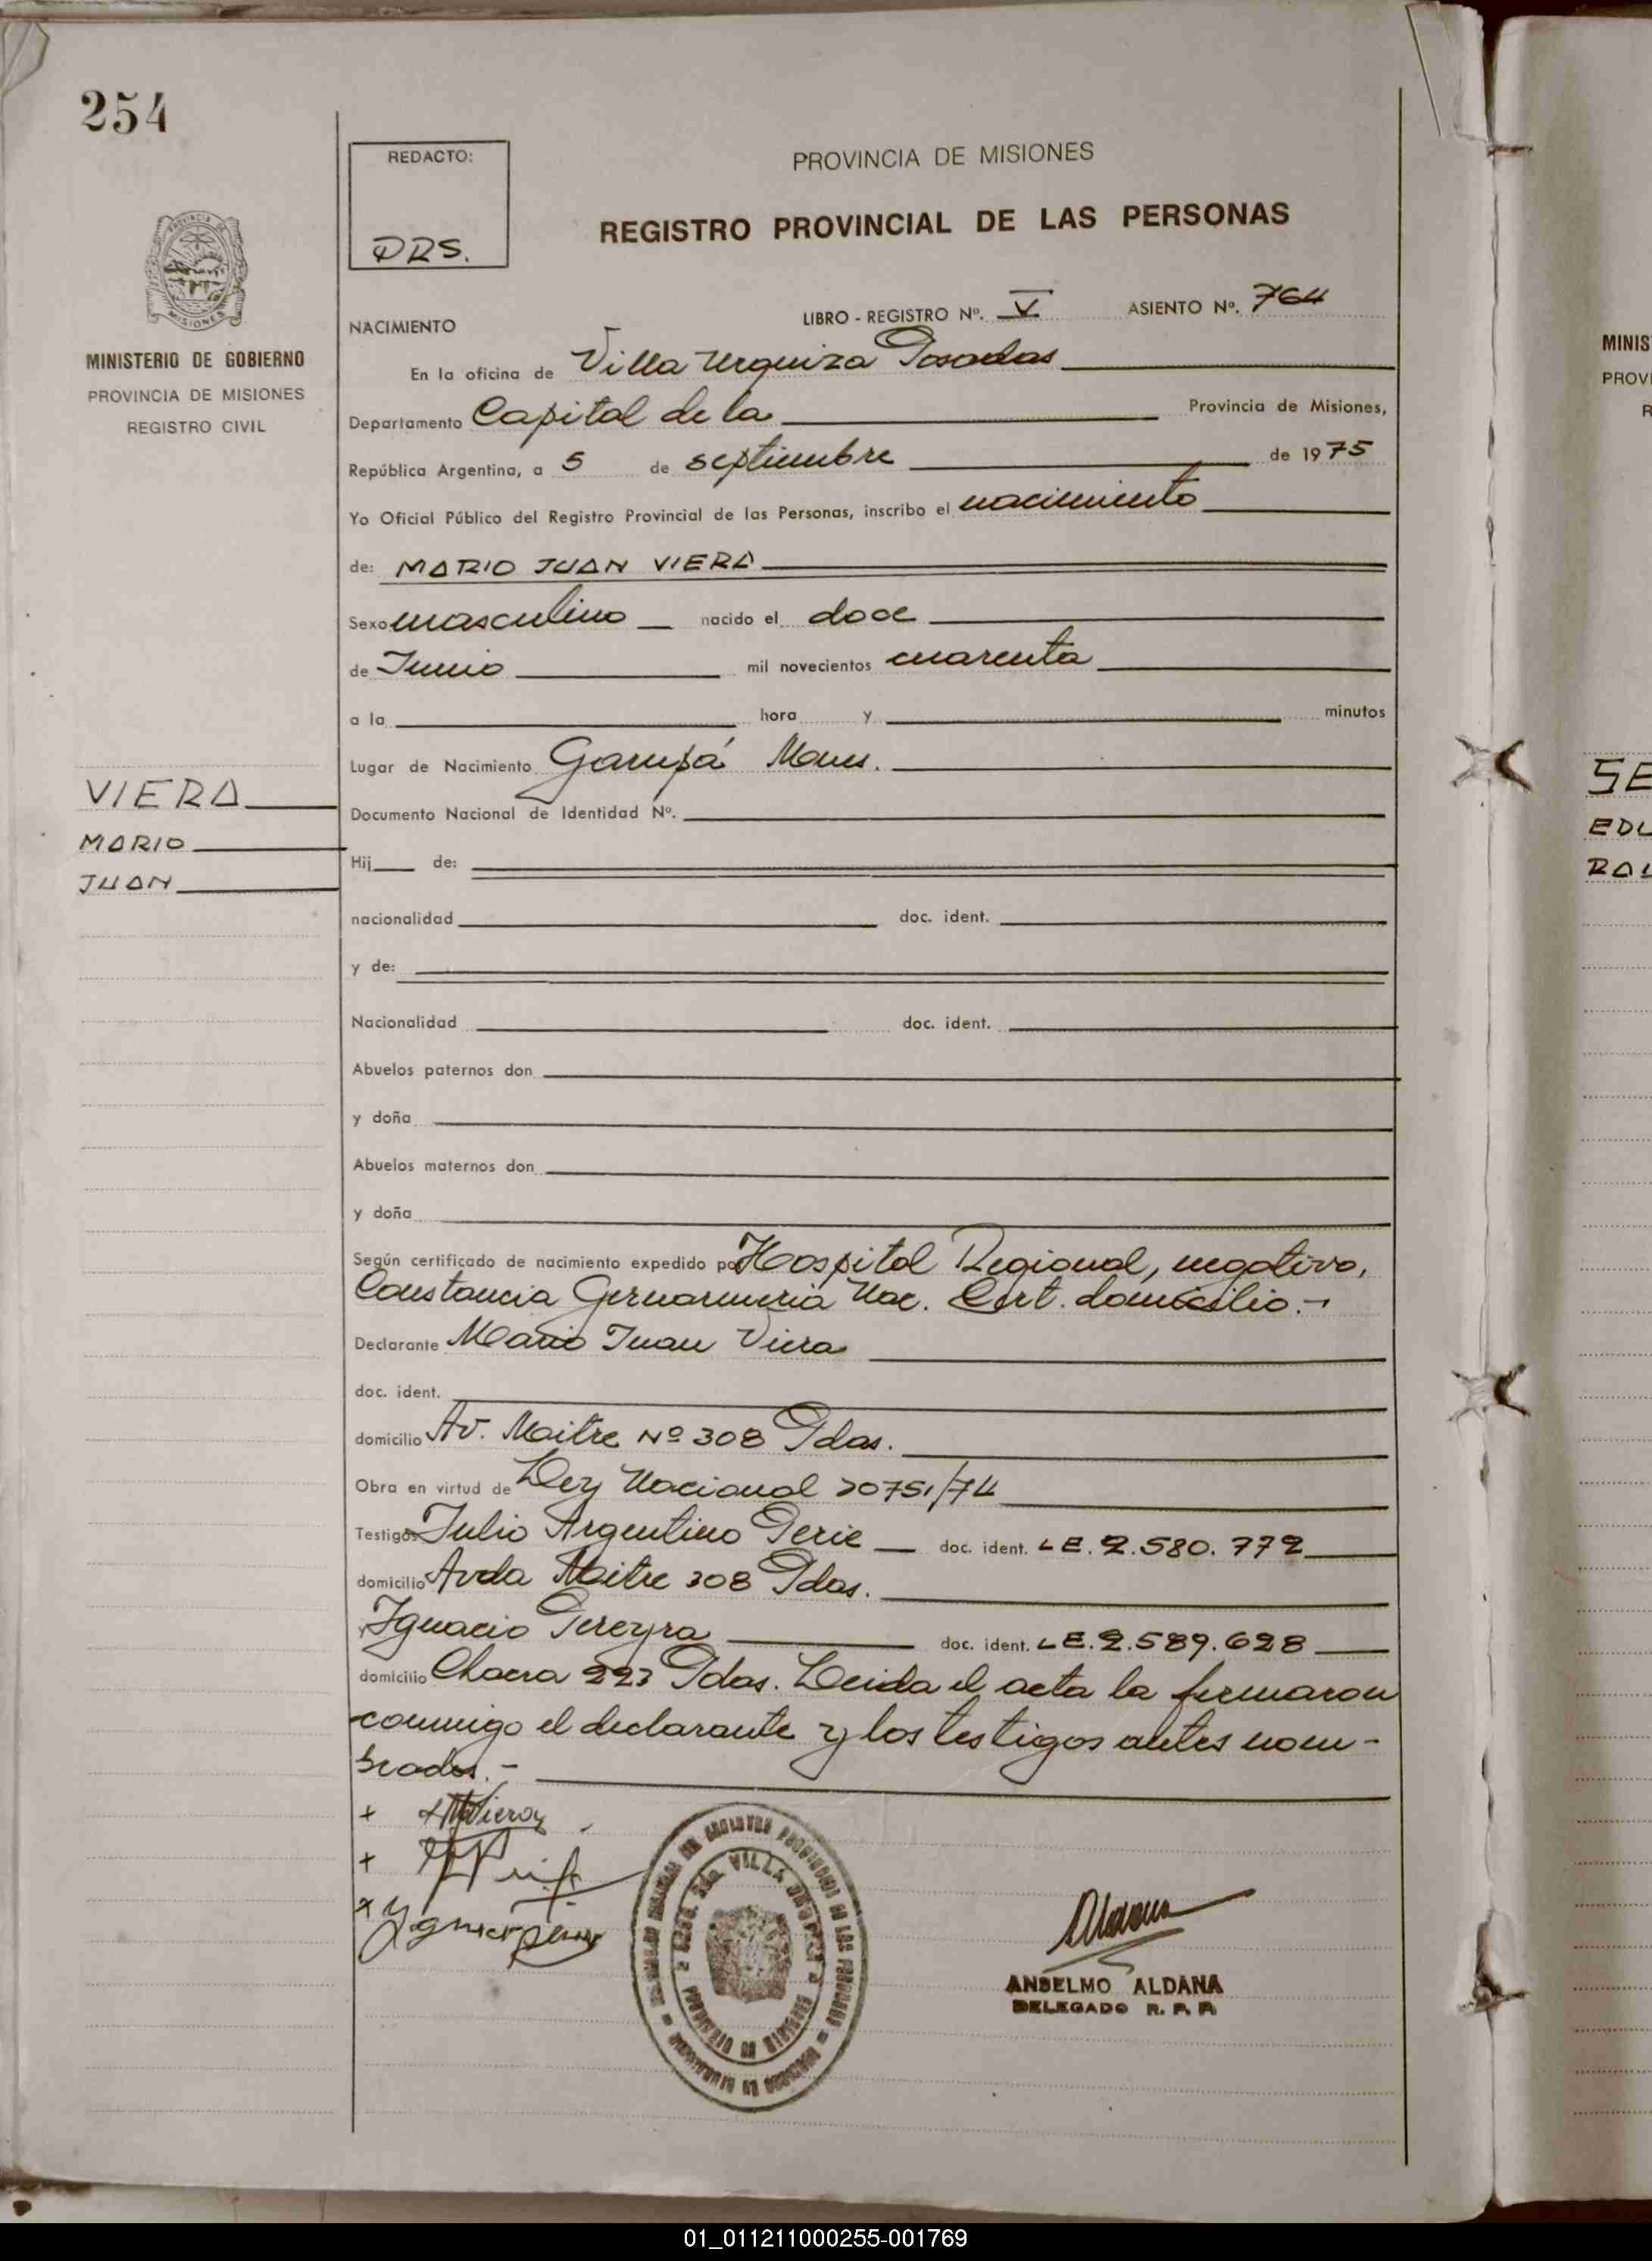 254
REDACTO:
DRS.
PROVINCIA DE MISIONES
REGISTRO PROVINCIAL DE LAS PERSONAS
MISIONES
MINISTERIO DE GOBIERNO
PROVINCIA DE MISIONES
REGISTRO CIVIL
LIBRO - REGISTRO Nº. V ASIENTO Nº. 764
NACIMIENTO
En la oficina de Villa Urquiza Posadas
Departamento Capital de la Provincia de Misiones,
República Argentina, a 5 de septiembre de 1975
Yo Oficial Público del Registro Provincial de las Personas, inscribo el nacimiento
de: MARIO JUAN VIERA
Sexo masculino nacido el doce
de Junio mil novecientos cuarenta
a la hora y minutos
Lugar de Nacimiento Garupá Mnes.
VIERA
MARIO
JUAN
Documento Nacional de Identidad Nº.
Hij de:
nacionalidad doc. ident.
y de:
Nacionalidad doc. ident.
Abuelos paternos don
y doña
Abuelos maternos don
y doña
Según certificado de nacimiento expedido por Hospital Regional, negativo,
Constancia Gernarmeria Nac. Cert. domicilio.-
Declarante Mario Juan Viera
doc. ident.
domicilio Av. Maitre Nº 308 Pdas.
Obra en virtud de Ley Nacional 20751/74
Testigos Julio Argentino Perie doc. ident. LE. 2.580.772
domicilio Avda Maitre 308 Pdas.
Ignacio Pereyra doc. ident. LE. 2.589.628
domicilio Chacra 223 Pdas. Leida el acta la firmaron
conmigo el declarante y los testigos antes nom-
brados.-
ANSELMO ALDANA
DELEGADO R. P. P.
MINIS
PROVI
R
SE
EDU
RAU
01_011211000255-001769